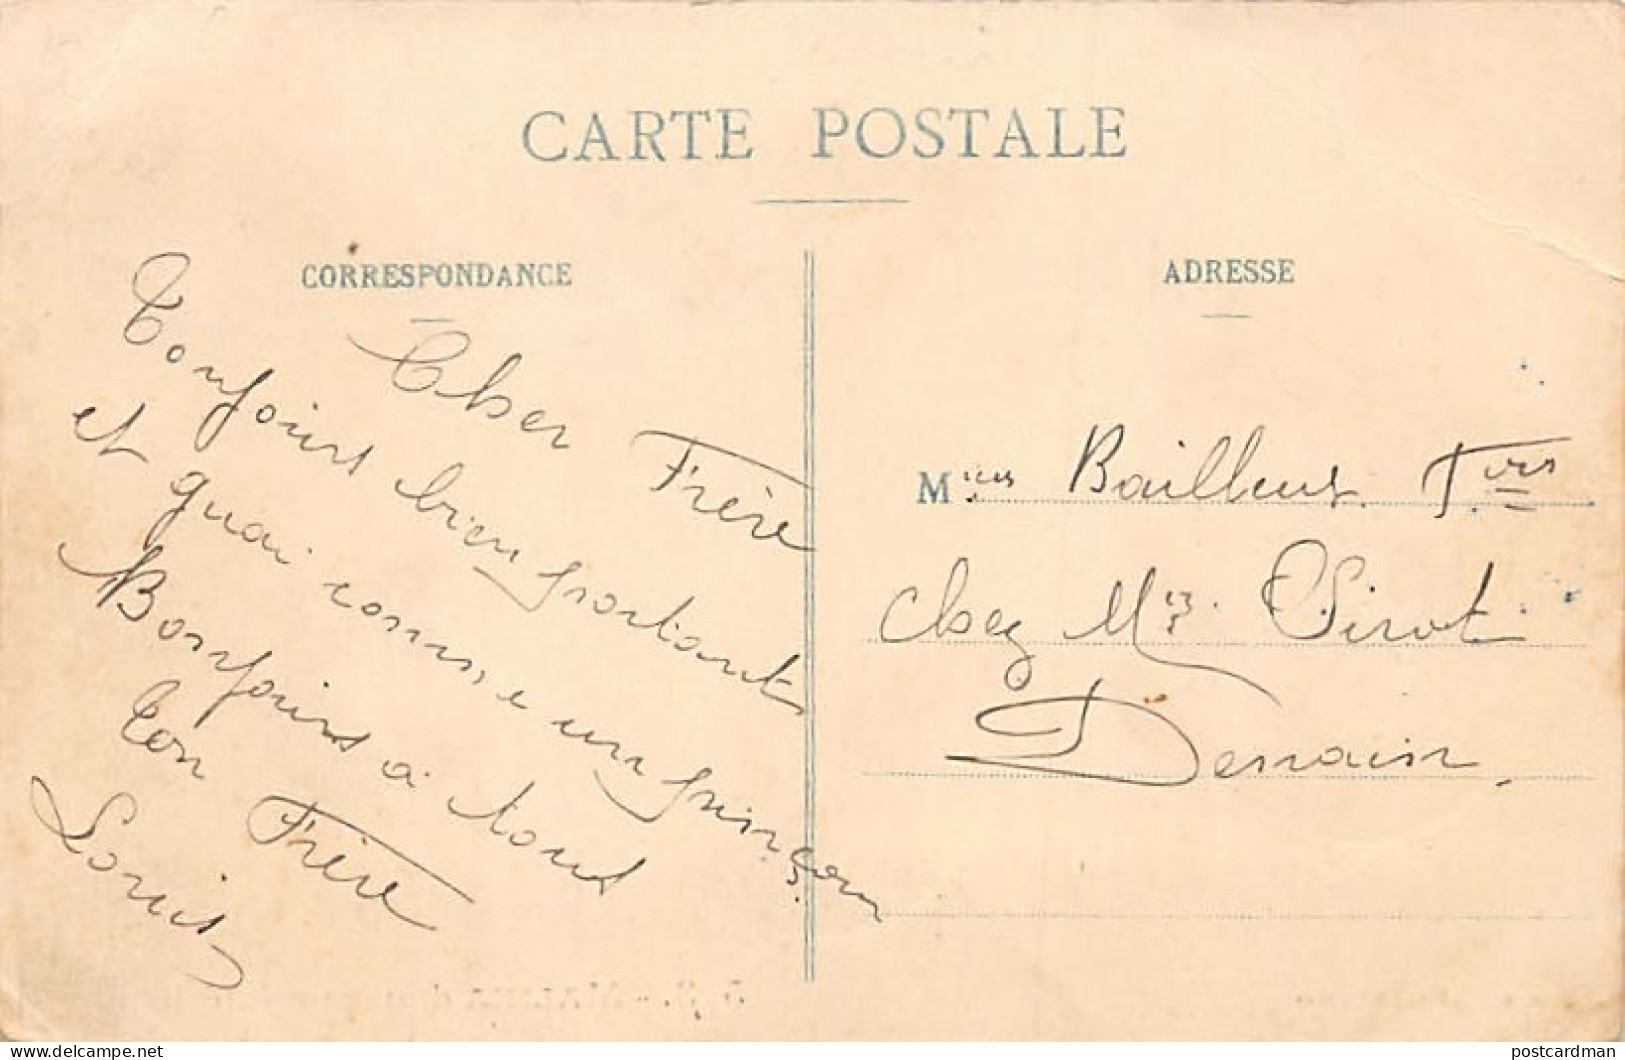 CARTE POSTALE
CORRESPONDANCE
Cher Frère
Toujours bien portant
et guai comme un pinçon
Bonjours a tout
Ton Frère
Louis
ADRESSE
Mieurs Bailleux Frères
chez Mr
Denain
postcardman